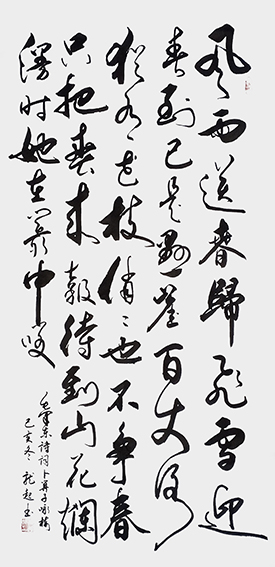 风雨送春歸飞雪迎
春到已是懸崖百丈冰
犹有花枝俏〻也不争春
只把春来報待到山花爛
漫时她在叢中笑
毛泽东诗词卜算子咏梅
己亥冬 书